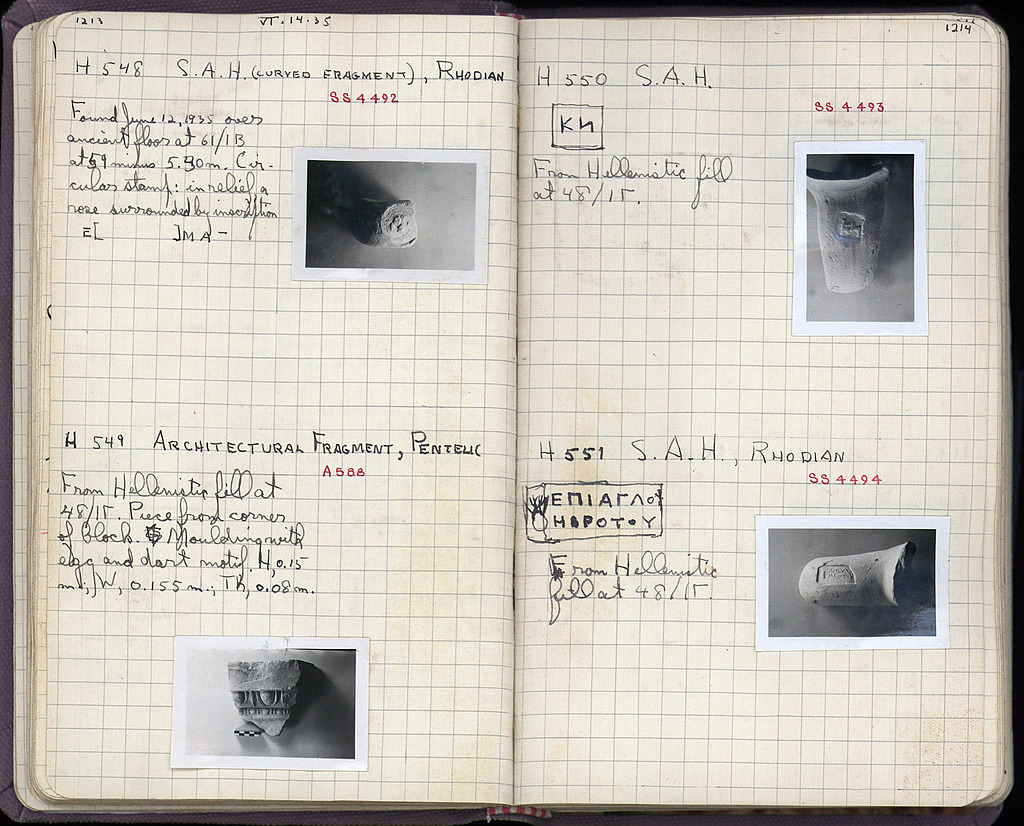 1213
VI.14.35
H 548 S.A.H. (CURVED FRAGMENT), RHODIAN
SS 4492
Found June 12, 1935 over
ancient floor at 61/ΙΒ
at 59 minus 5.30m. Cir-
cular stamp: in relief a
rose surrounded by inscription
Ε[ ]ΜΑ-
H 549 ARCHITECTURAL FRAGMENT, PENTELIC
A 588
From Hellenistic fill at
48/ΙΓ. Piece from corner
of block. Moulding with
egg and dart motif. H, 0.15
m.; W, 0.155 m.; Th, 0.08 m.
1214
H 550 S.A.H.
SS 4493
ΚИ
From Hellenistic fill
at 48/ΙΓ.
H 551 S.A.H., RHODIAN
SS 4494
ΕΠΙΑΓΛΟΥ
ΗΒΡΟΤΟΥ
From Hellenistic
fill at 48/ΙΓ.